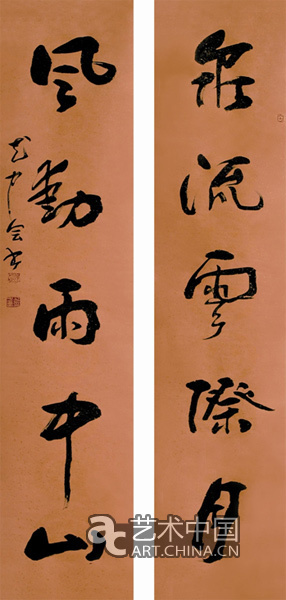 泉流雲際月
風動雨中山
艺术中国
ART.CHINA.CN